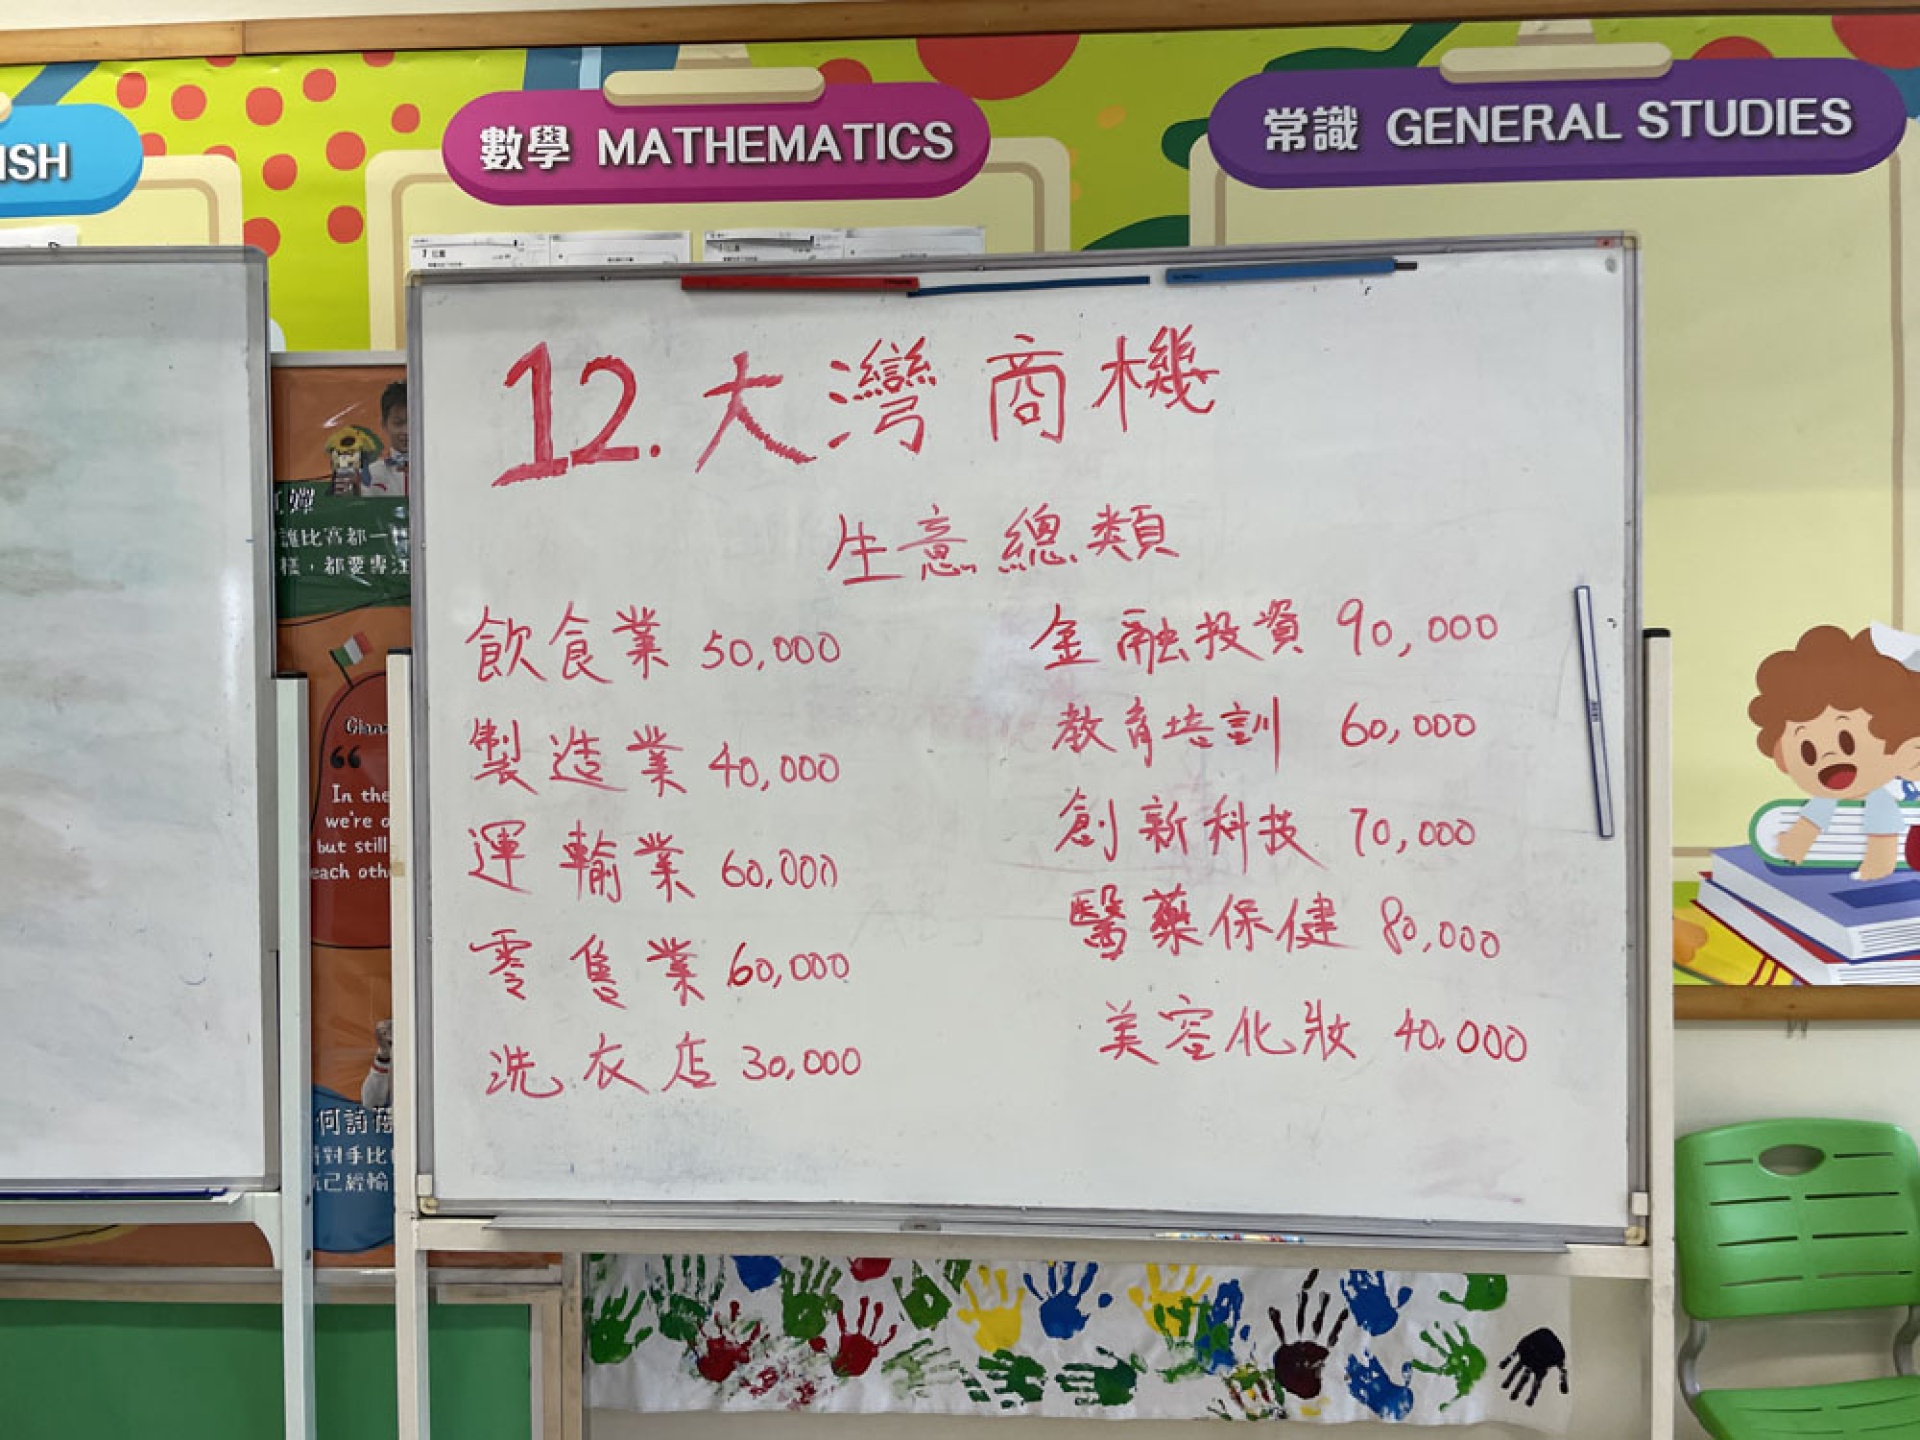 ISH
數學 MATHEMATICS
常識 GENERAL STUDIES
12.大灣商機
生意總類
飲食業 50,000
製造業 40,000
運輸業 60,000
零售業 60,000
洗衣店 30,000
金融投資 90,000
教育培訓 60,000
創新科技 70,000
醫藥保健 80,000
美容化妝 40,000
誰比賽都一
樣，都要專注
“
In the
we're o
but still
each oth
何詩蓓
對手比
己經輸